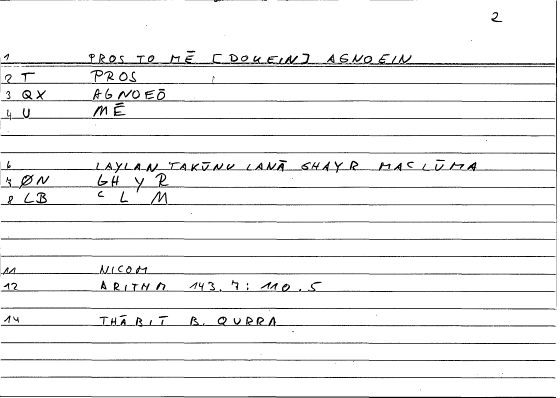 2
1 PROS TO MĒ [DOKEIN] AGNOEIN
2 T PROS
3 QX AGNOEŌ
4 U MĒ
6 LAYLAN TAKŪNU LANĀ GHAYR MACLŪMA
7 ØN GH Y R
8 LB C L M
11 NICOM
12 ARITHM 143.7: 110.5
14 THĀBIT B. QURRA